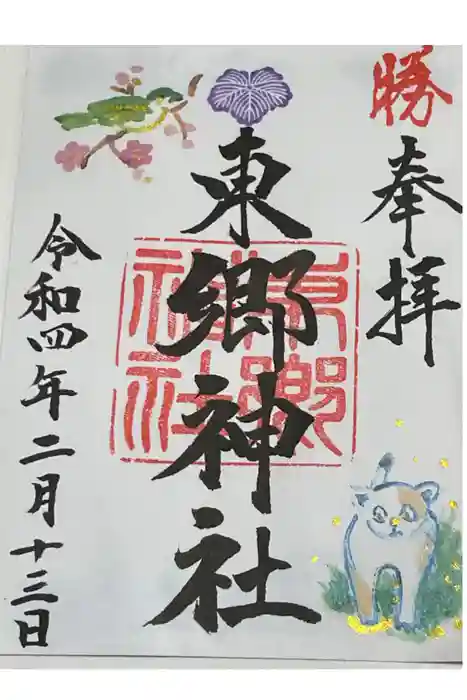 勝
奉拝
東郷神社
東郷神社
令和四年二月十三日